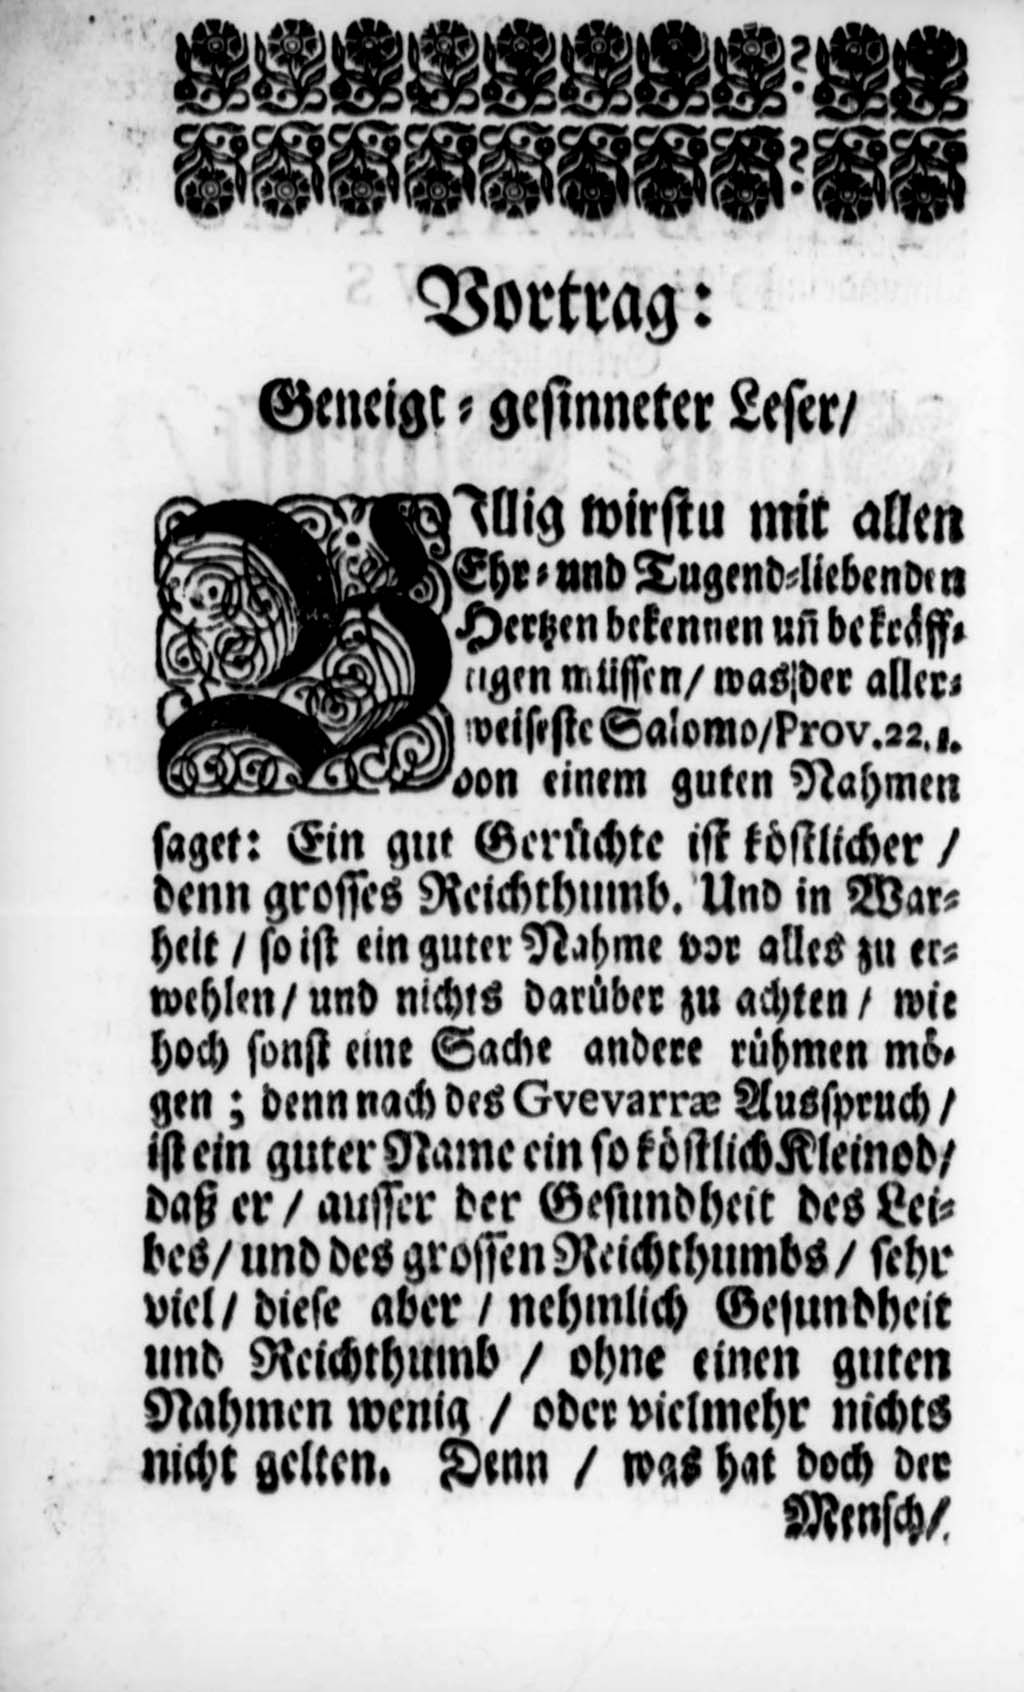 Vortrag:
Geneigt-gesinneter Leser/
BIllig wirstu mit allen
Ehr- und Tugend-liebenden
Hertzen bekennen un̄ bekräff-
tigen müssen/ was der aller-
weiseste Salomo/Prov.22.1.
von einem guten Nahmen
saget: Ein gut Gerüchte ist köstlicher /
denn grosses Reichthumb. Und in War-
heit / so ist ein guter Nahme vor alles zu er-
wehlen/ und nichts darüber zu achten/ wie
hoch sonst eine Sache andere rühmen mö-
gen ; denn nach des Gvevarræ Ausspruch /
ist ein guter Name ein so köstlich Kleinod/
daß er / ausser der Gesundheit des Lei-
bes/ und des grossen Reichthumbs/ sehr
viel/ diese aber / nehmlich Gesundheit
und Reichthumb / ohne einen guten
Nahmen wenig / oder vielmehr nichts
nicht gelten. Denn / was hat doch der
Mensch/